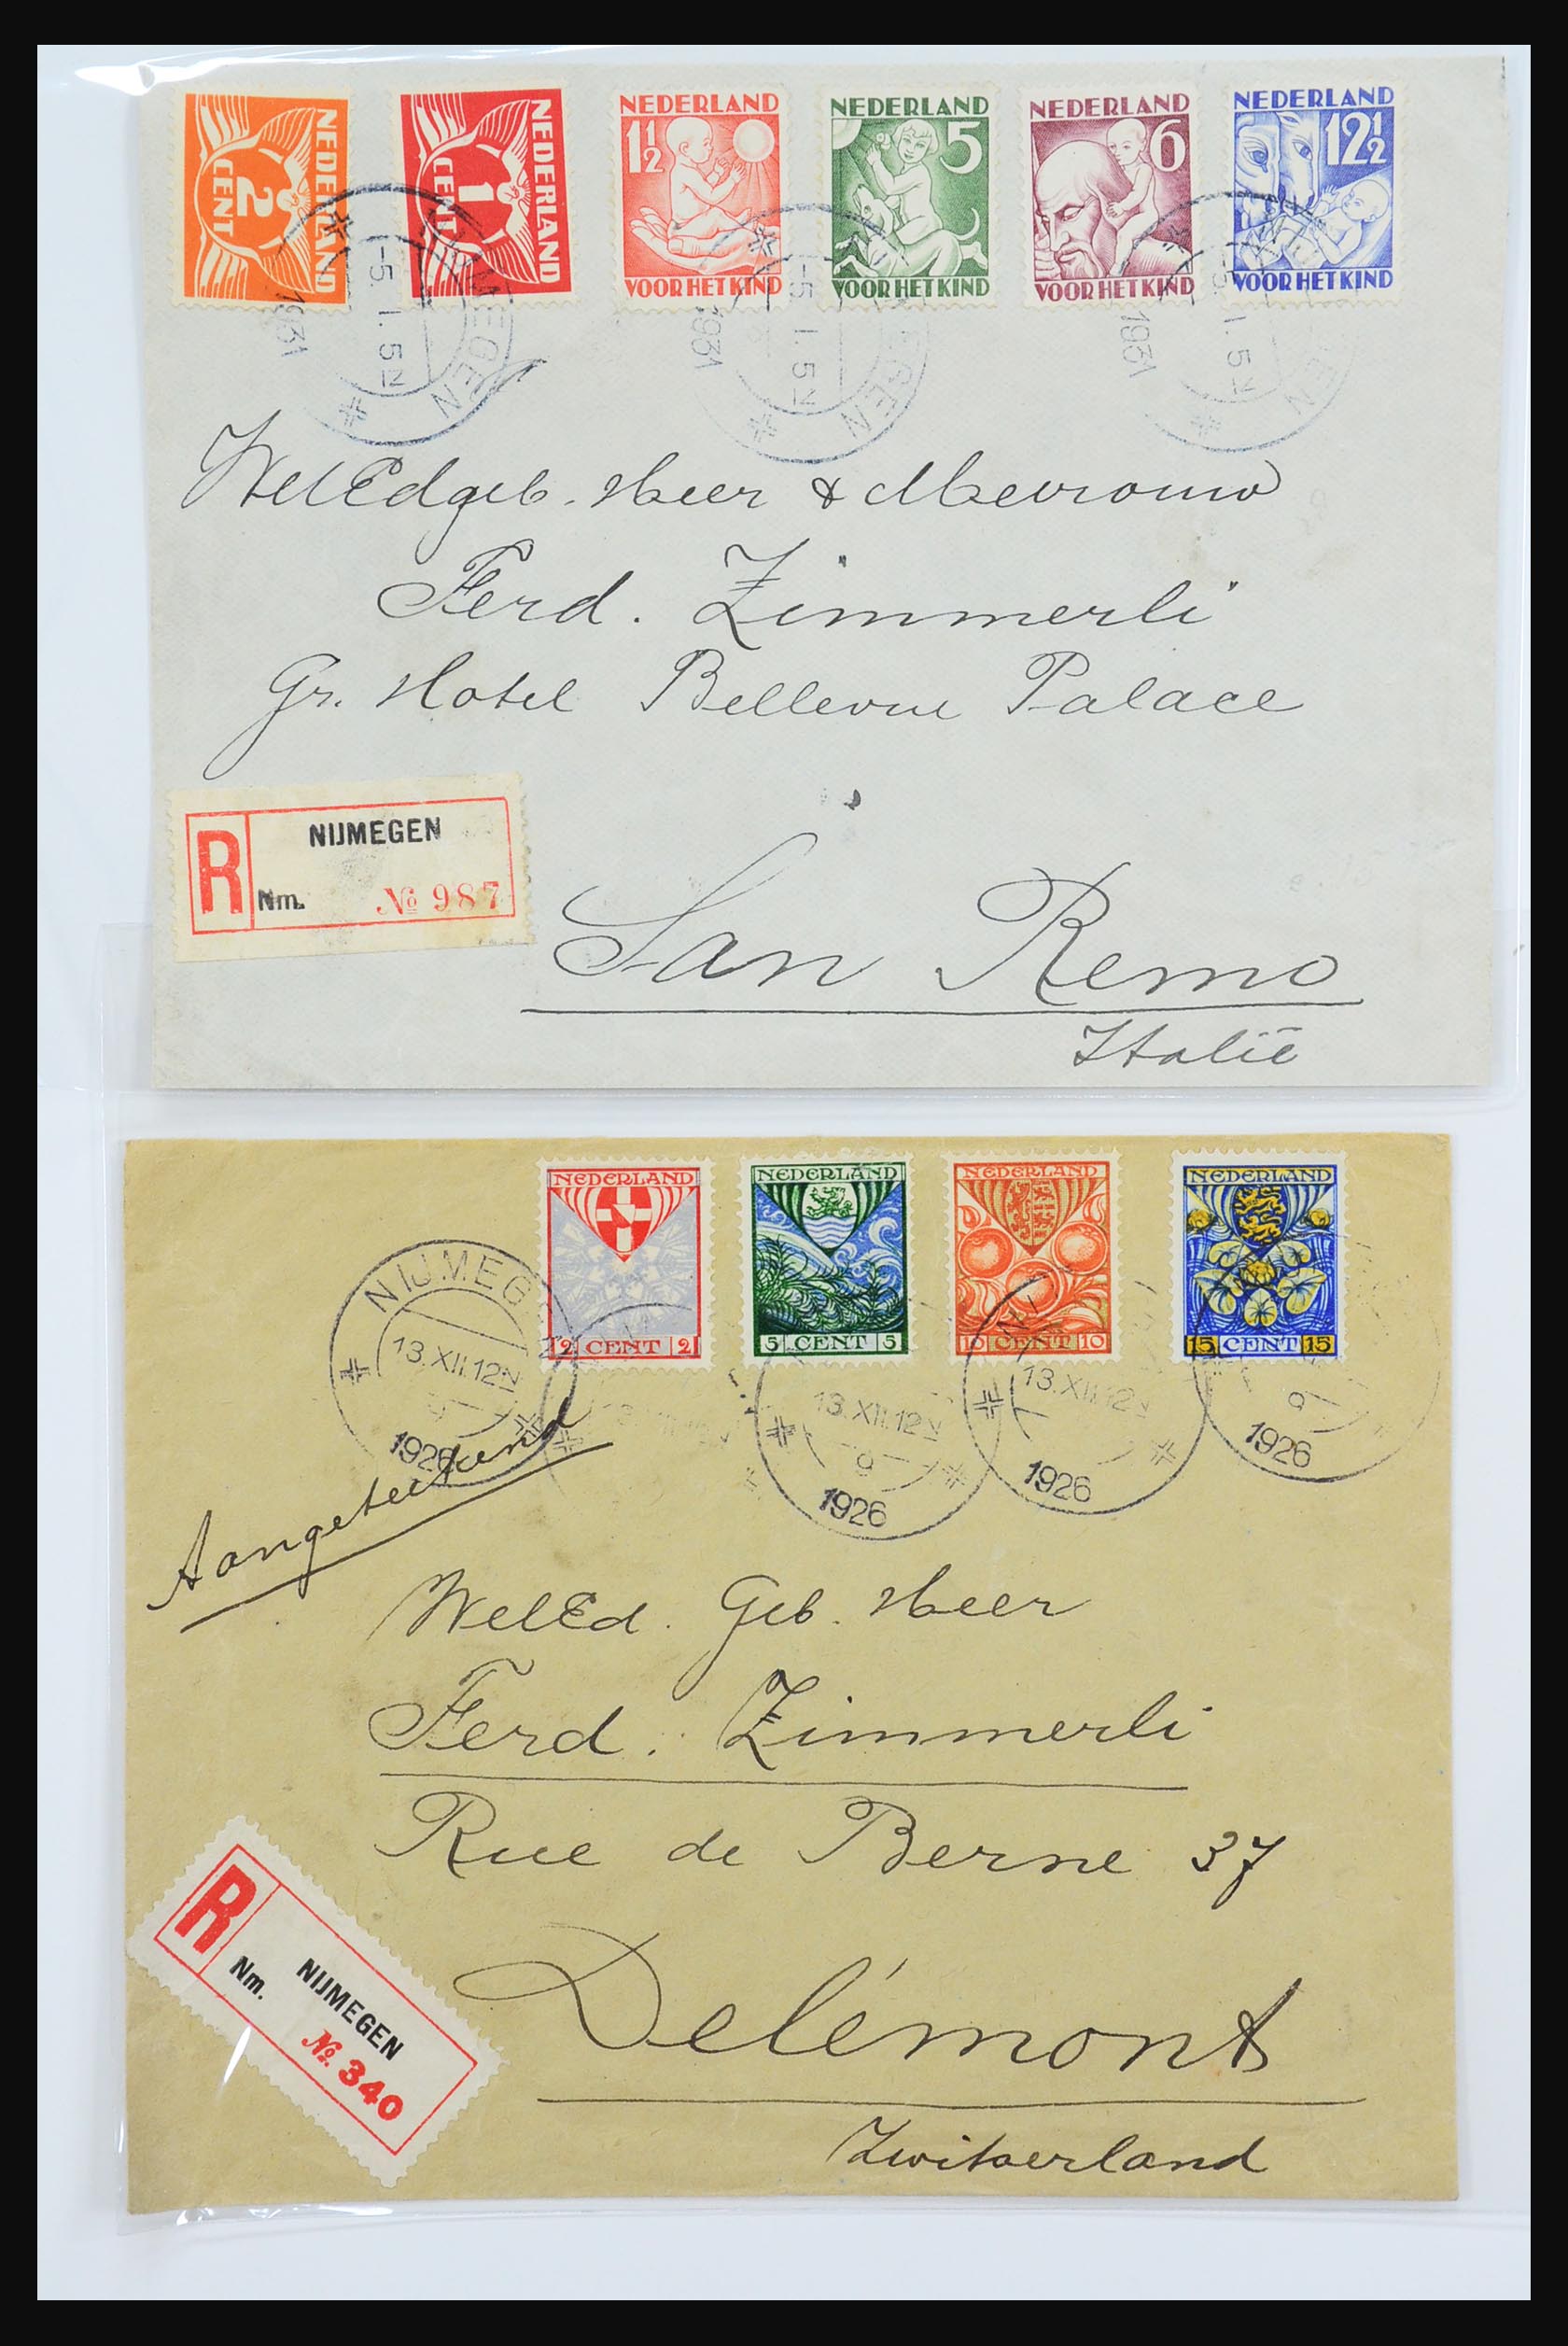 NEDERLAND
2
CENT
NEDERLAND
1
CENT
NEDERLAND
1½
VOOR HET KIND
NEDERLAND
5
VOOR HET KIND
NEDERLAND
6
VOOR HET KIND
NEDERLAND
12½
VOOR HET KIND
NIJMEGEN
-5.I.5N
1931
-5.I.5N
1931
-5.I.5N
1931
WelEdgeb. Heer & Mevrouw
Ferd. Zimmerli
Gr. Hotel Bellevue Palace
R
NIJMEGEN
Nm. No 987
San Remo
Italië
NEDERLAND
2 CENT 2
NEDERLAND
5 CENT 5
NEDERLAND
10 CENT 10
NEDERLAND
15 CENT 15
NIJMEG
13.XII.12N
9
1926
13.XII.12N
9
1926
13.XII.12N
1926
9
1926
Aangetekend
WelEd. Geb. Heer
Ferd. Zimmerli
Rue de Berne 37
R
NIJMEGEN
Nm.
No. 340
Delémont
Zwitserland